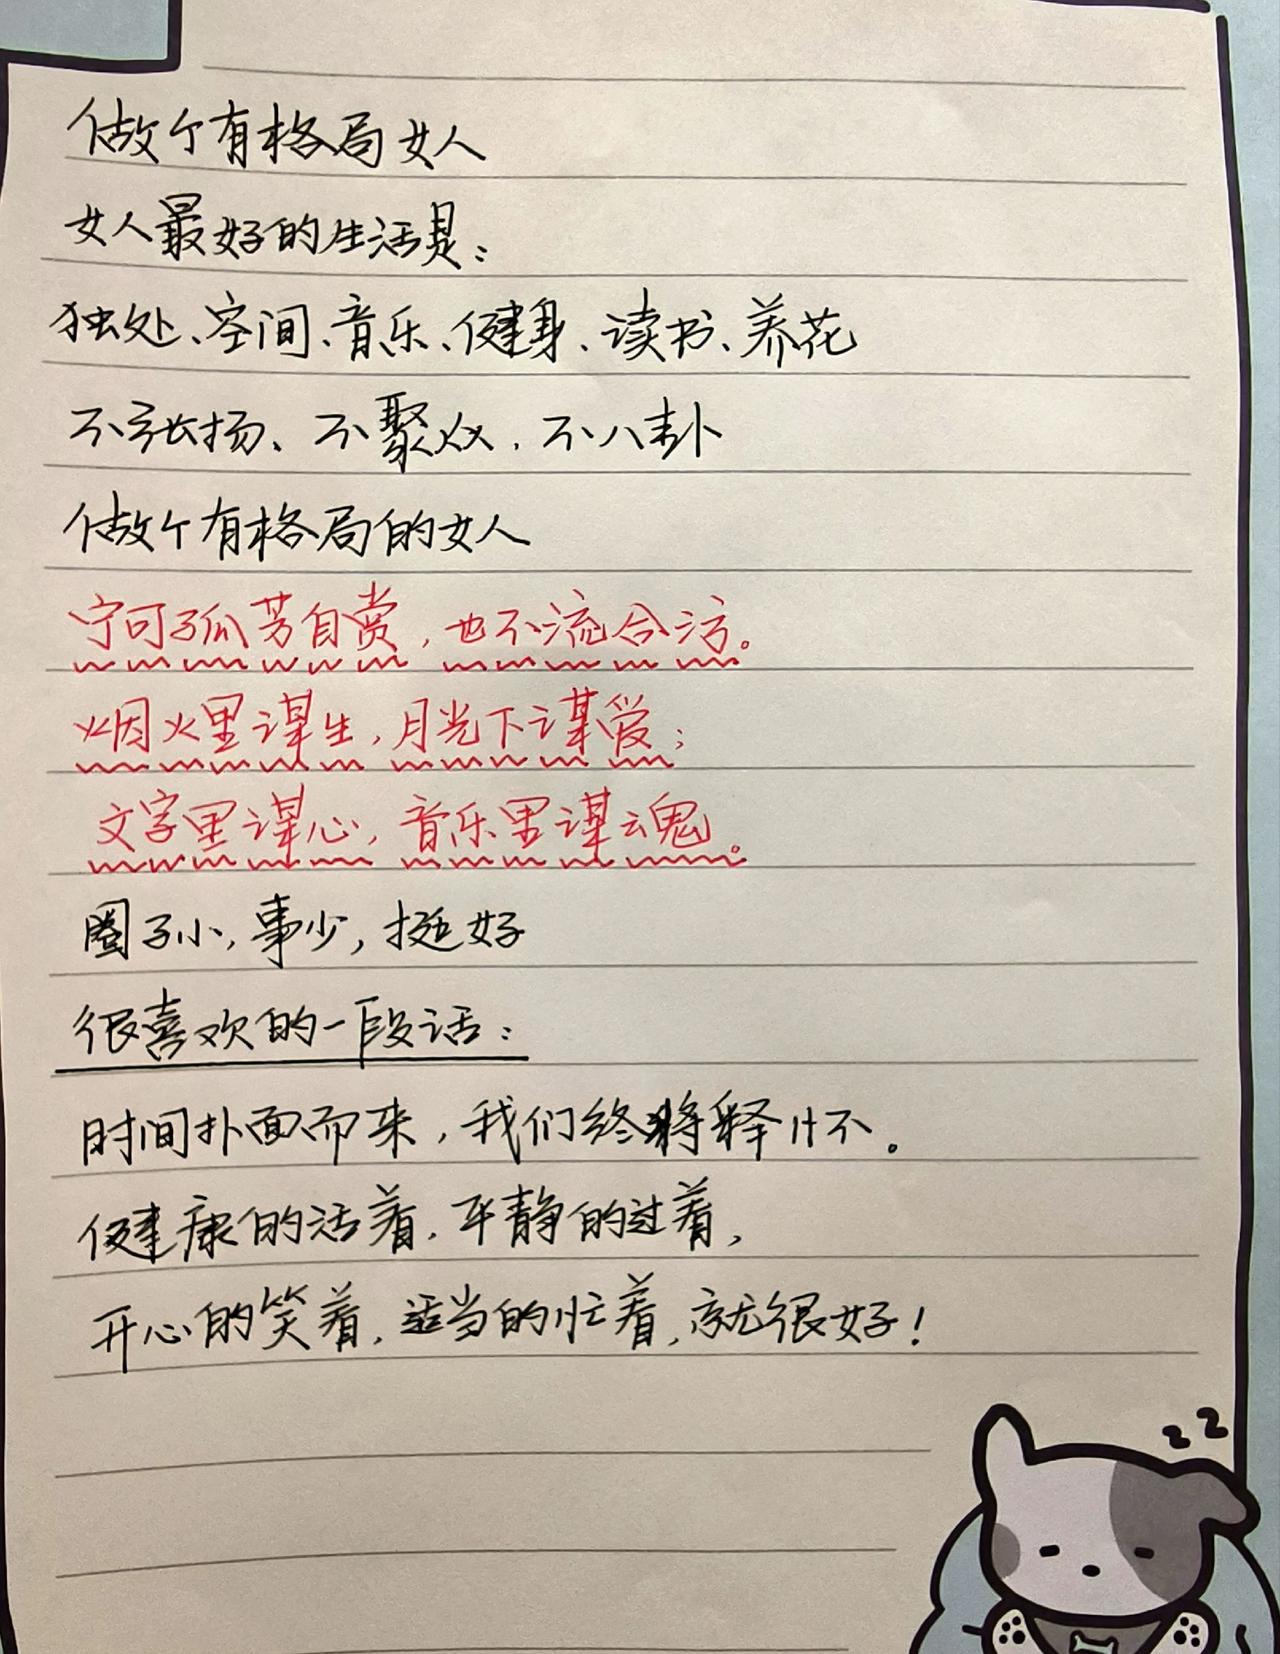 做个有格局女人
女人最好的生活是:
独处、空间、音乐、健身、读书、养花
不张扬、不聚众、不八卦
做个有格局的女人
宁可孤芳自赏,也不流合污。
烟火里谋生,月光下谋爱;
文字里谋心,音乐里谋魂。
圈子小,事少,挺好
很喜欢的一段话:
时间扑面而来,我们终将释怀。
健康的活着,平静的过着,
开心的笑着,适当的忙着,就很好!
zz